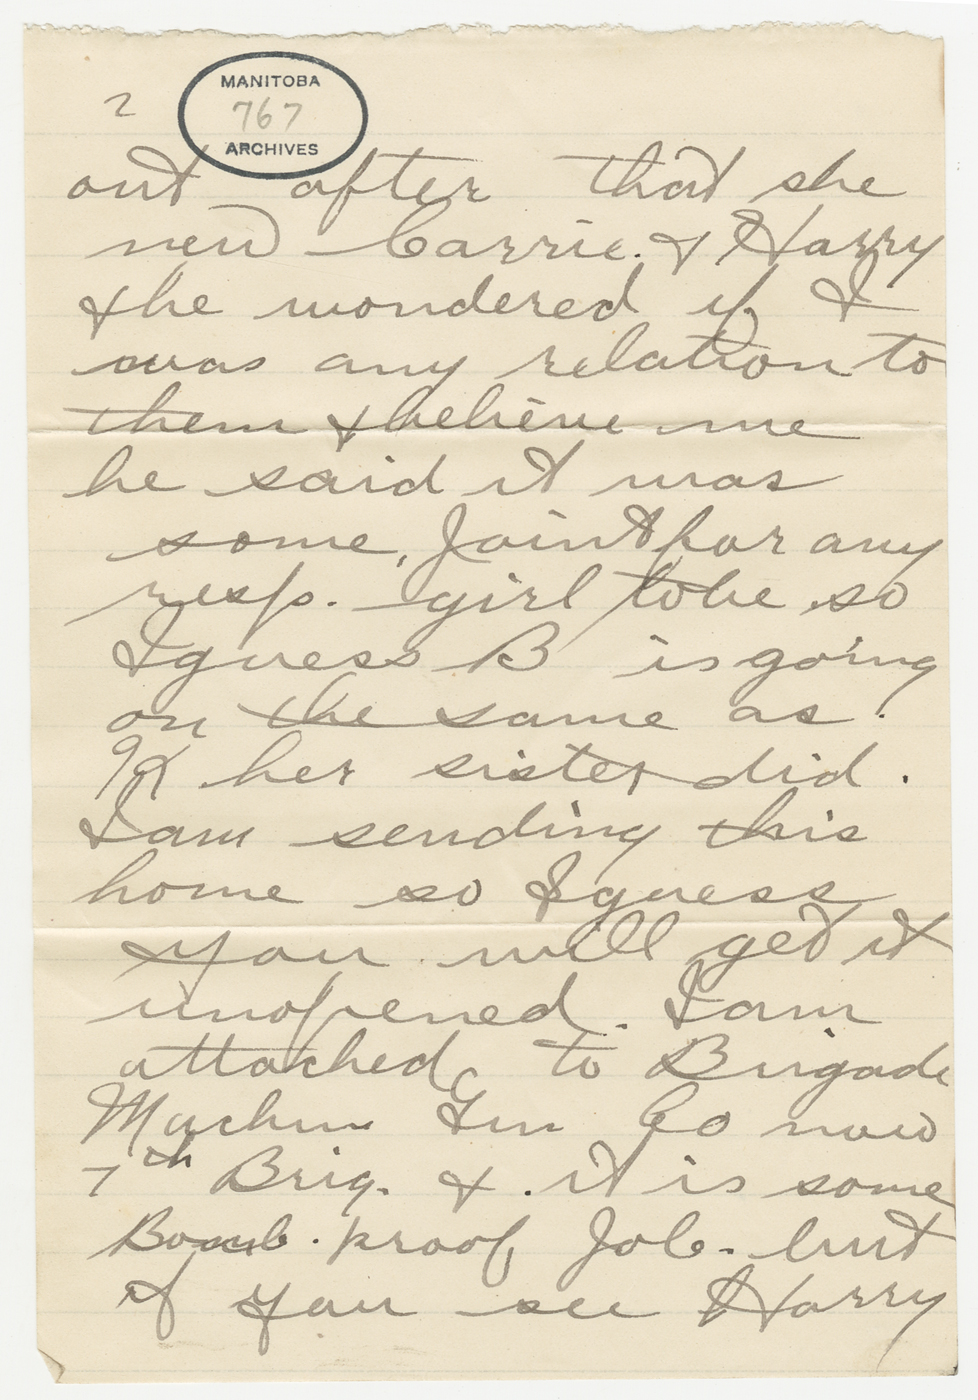 2
MANITOBA
767
ARCHIVES
out after that she
new Carrie. & Harry
& he wondered if I
was any relation to
them & believe me
he said it was
some, Joint for any
resp. girl to be so
I guess B is going
on the same as.
K her sister did.
I am sending this
home so I guess
you will get it
unopened. I am
attached to Brigade
Machine Gun Co now
7th Brig. & . it is some
Bomb. proof Job. but
if you see Harry